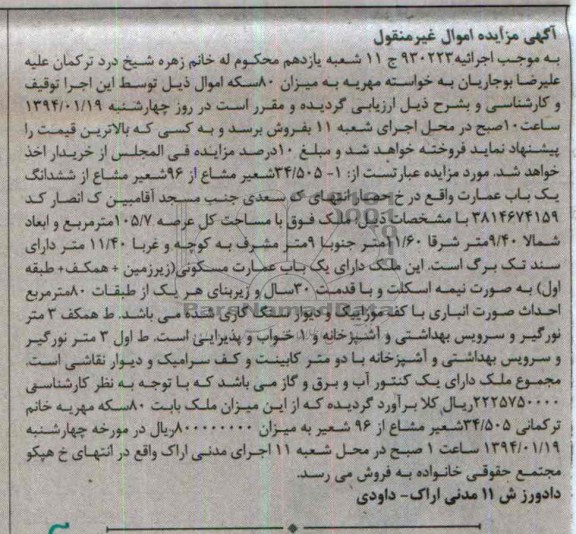 آگهی مزایده اموال غیرمنقول
به موجب اجرائیه ۹۳۰۲۲۳ ج ۱۱ شعبه یازدهم محکوم له خانم زهره شیخ درد ترکمان علیه
علیرضا بوجاریان به خواسته مهریه به میزان ۸۰سکه اموال ذیل توسط این اجرا توقیف
و کارشناسی و بشرح ذیل ارزیابی گردیده و مقرر است در روز چهارشنبه ۱۳۹۴/۰۱/۱۹
ساعت۱۰صبح در محل اجرای شعبه ۱۱ بفروش برسد و به کسی که بالاترین قیمت را
پیشنهاد نماید فروخته خواهد شد و مبلغ ۱۰درصد مزایده فی المجلس از خریدار اخذ
خواهد شد. مورد مزایده عبارتست از: ۱- ۳۴/۵۰۵شعیر مشاع از ۹۶شعیر مشاع از ششدانگ
یک باب عمارت واقع در خ حصار انتهای ک سعدی جنب مسجد آقامبین ک انصار کد
۳۸۱۴۶۷۴۱۵۹ با مشخصات ذیل: ملک فوق با مساحت کل عرصه ۱۰۵/۷مترمربع و ابعاد
شمالا ۹/۴۰متر شرقا ۱۱/۶۰متر جنوبا ۹متر مشرف به کوچه و غربا ۱۱/۴۰ متر دارای
سند تک برگ است. این ملک دارای یک باب عمارت مسکونی(زیرزمین + همکف+ طبقه
اول) به صورت نیمه اسکلت و با قدمت ۳۰سال و زیربنای هر یک از طبقات ۸۰مترمربع
احداث صورت انباری با کف موزاییک و دیوار سنگ کاری شده می باشد. ط همکف ۳ متر
نورگیر و سرویس بهداشتی و آشپزخانه و ۱ خواب و پذیرایی است. ط اول ۳ متر نورگیر
و سرویس بهداشتی و آشپزخانه با دو متر کابینت و کف سرامیک و دیوار نقاشی است.
مجموع ملک دارای یک کنتور آب و برق و گاز می باشد که با توجه به نظر کارشناسی
۲۲۲۵۷۵۰۰۰۰ریال کلا برآورد گردیده که از این میزان ملک بابت ۸۰سکه مهریه خانم
ترکمانی ۳۴/۵۰۵شعیر مشاع از ۹۶ شعیر به میزان ۸۰۰۰۰۰۰۰۰ریال در مورخه چهارشنبه
۱۳۹۴/۰۱/۱۹ ساعت ۱ صبح در محل شعبه ۱۱ اجرای مدنی اراک واقع در انتهای خ هپکو
مجتمع حقوقی خانواده به فروش می رسد.
دادورز ش ۱۱ مدنی اراک- داودی